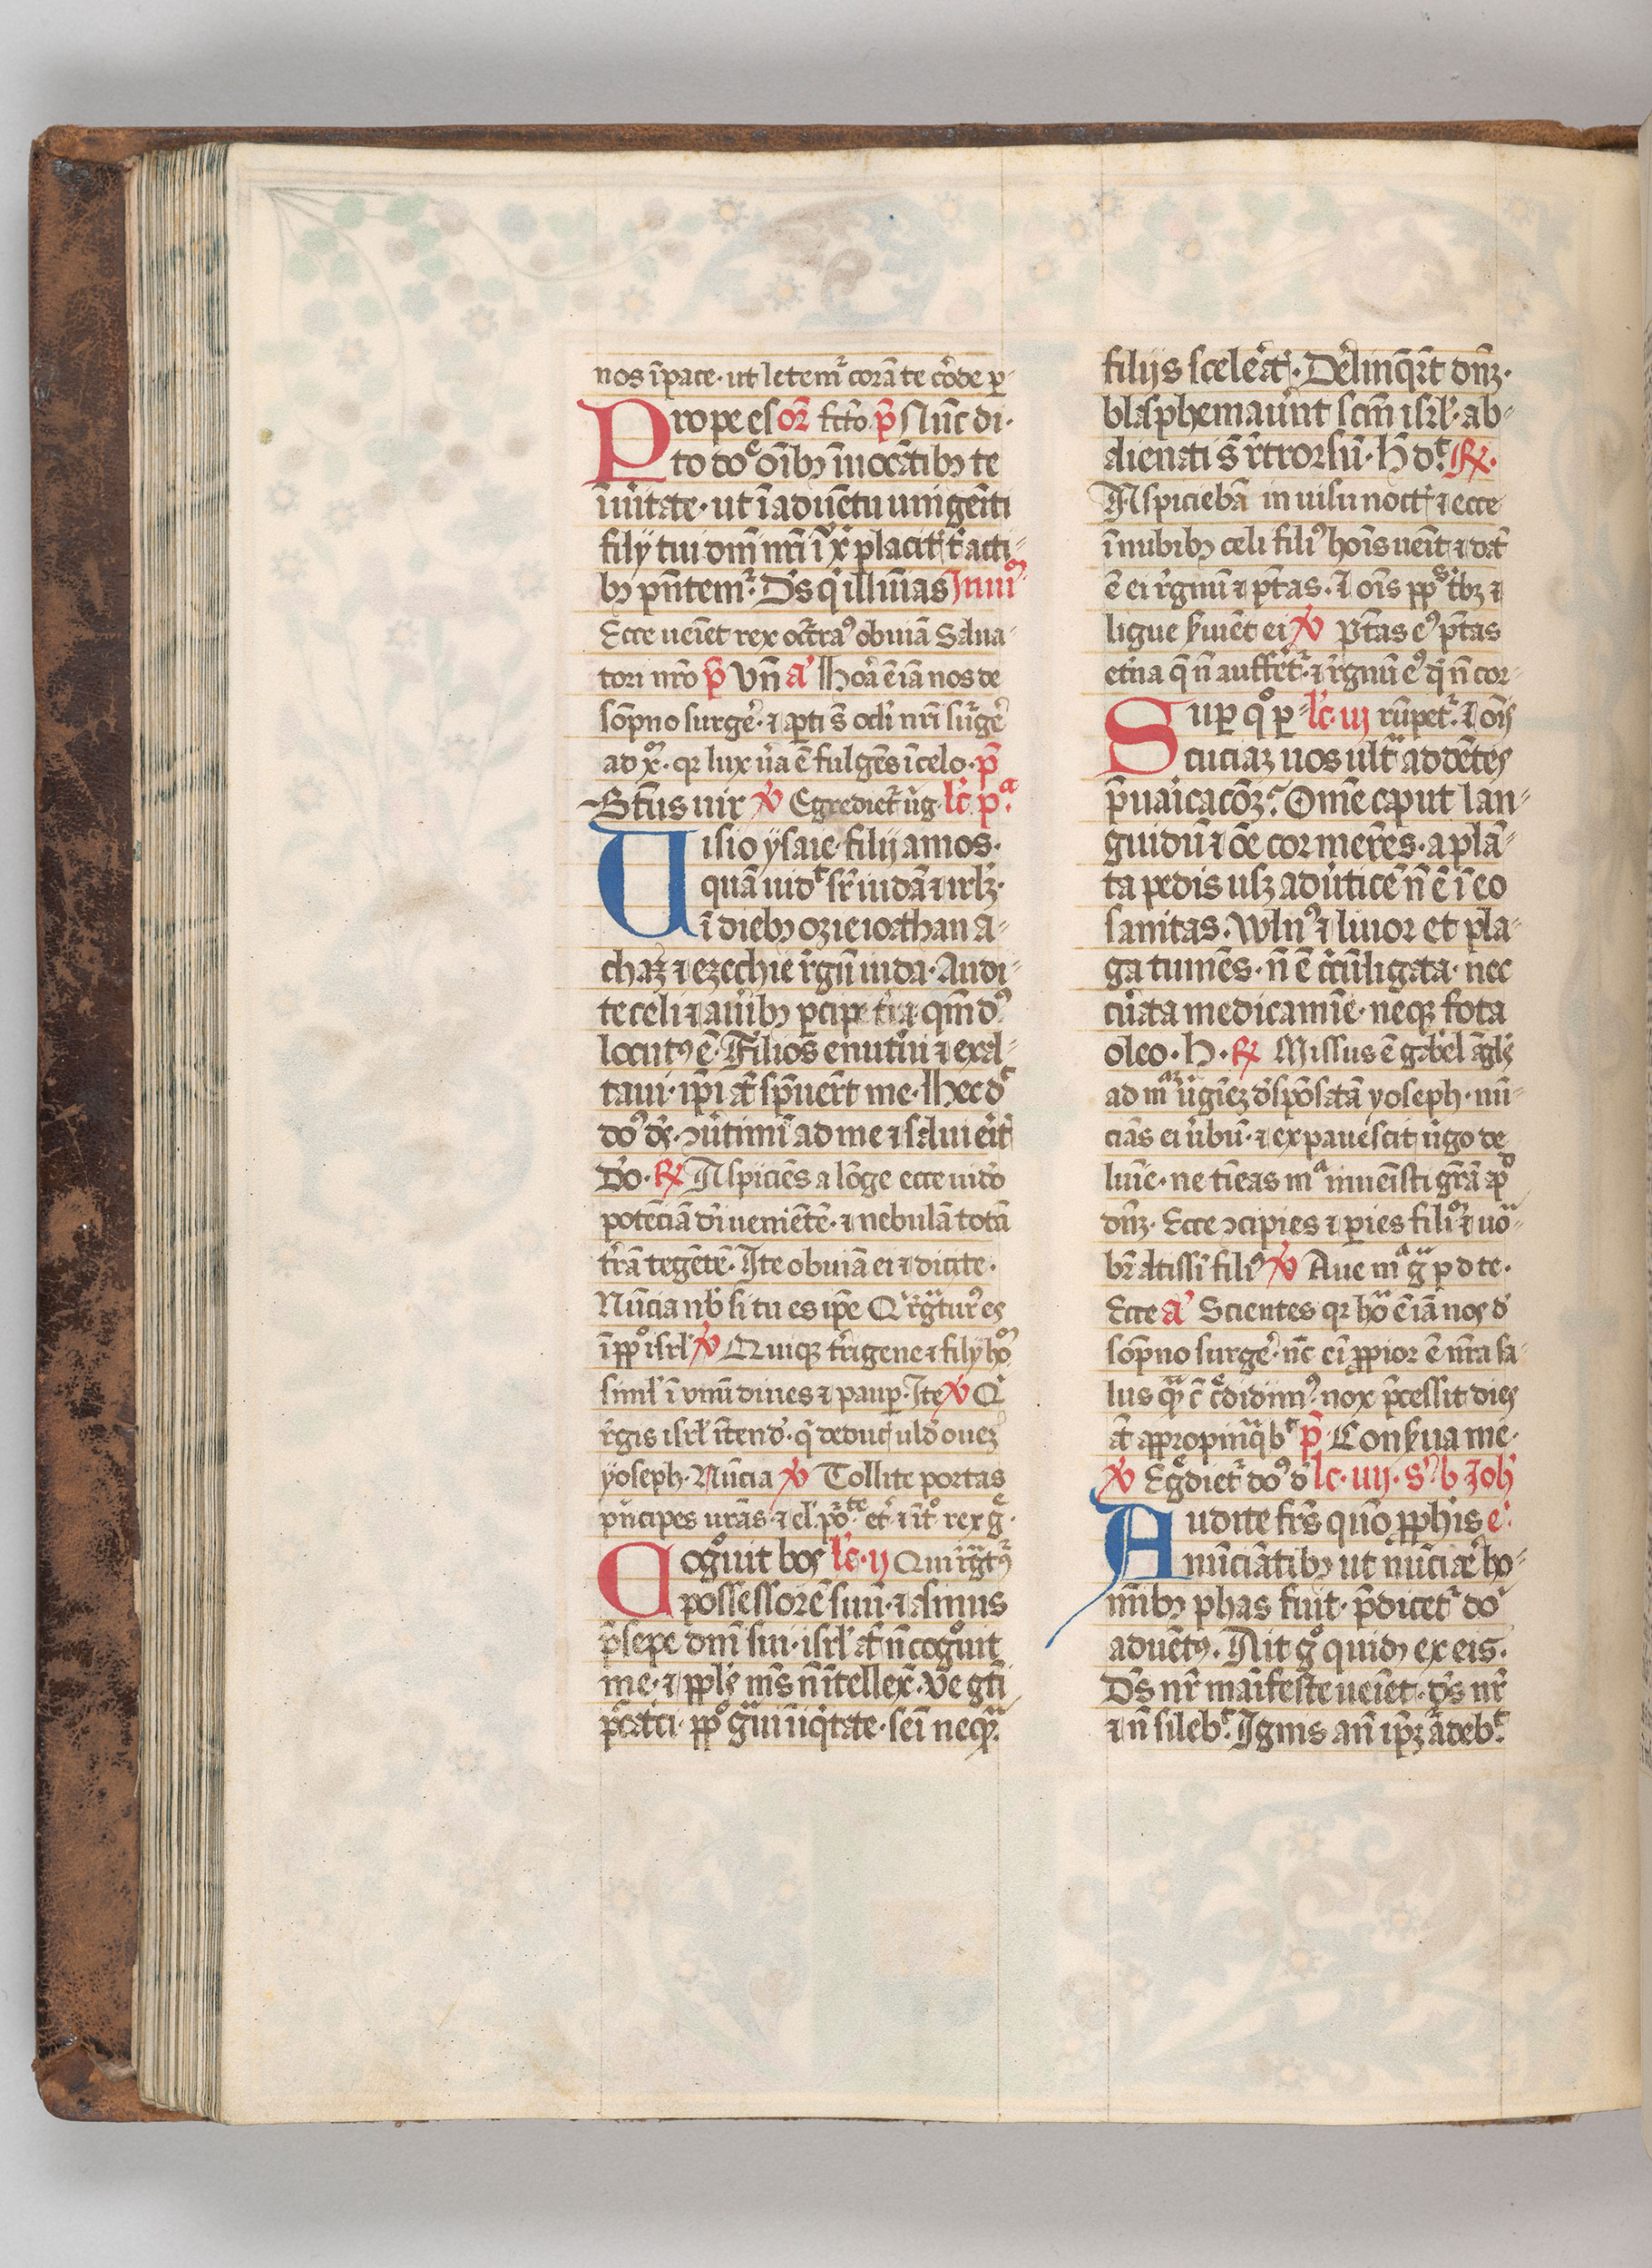 nos īpace · ut letem̄ corā te cōrde p̱
Prope es or̄ scdo p̄s Nūc di·
to do oīb; īuocātib; te
īūitate · ut ī aduētu unigēiti
filij tui dnī nrī iħ x̄ placit' f̄ acti-
b; p̄ntem̄ · Ds̄ q' illūias Inuī
Ecce ueniet rex occ̄ra' obuiā Salua-
tori nr̄o p̄ Vn̄ a' Hora ē iā nos de
sōpno surgē · ⁊ apti s̄ oc̄li nrī sūgē
ad x̄ · qr lux ūa ē fulgēs ī celo · p̄
Btūs uir ꝟ Egrediet̄ ūg · lc̄ pa
Uisio ysaie filij amos ·
quā uid sr̄ iudā ⁊ irlꝫ ·
ī dieb; ozie ioathan a-
chaz ⁊ ezechie r̄gū iuda · Audi-
te celi ⁊ aurib; pcipe t̄ra qm̄ do'
locut' ē · Filios enutiui ⁊ exal-
taui · ip̄i āt sp̄uert me · Hec d
do' ds̄ · ꝯūtimī ad me ⁊ salui eit'
Do · ℟ Aspiciēs a lōge ecce uideo
potēciā dī ueniētē · ⁊ nebulā totā
t̄rā tegētē · Ite obuiā ei ⁊ dicite ·
Nūcia nb' si tu es ip̄e Q' r̄gtur' es
ī ppo isrl' ꝟ Quiq; t̄rigene ⁊ filij ho
siml' ī vnū diues ⁊ paup · Ite ꝟ Q'
r̄gis isrl' ītend' · q' deduc' uld' oueꝫ
yoseph · Nūcia ꝟ Tollite portas
p̄ncipes ur̄as · ⁊ el' por̄te et' ⁊ īt' rex g ·
Cogouit bos lc̄ · ij Qui r̄gt'
possessorē suū · ⁊ asinus
p̄sepe dnī sui · isrl' āt n̄ cogouit
me · ⁊ ppls ms̄ n̄ ītellex̄ · Ve gti
pc̄ati · ppo gui īiq̄tate · seī neq̄
filijs scelēat' · Delinq̄rt dnꝫ ·
blasphemauūnt scm̄ isrl' · ab-
alienati s̄ r̄trorsū · H d' ℟ ·
Aspiciebā in uisu noct' ⁊ ecce
ī nubib; celi fili' hoīs ueīt ⁊ dat'
ē ei r̄gnū ⁊ p̄tas · ⁊ oīs pp's tbꝫ ⁊
ligue s̄uiēt ei ꝟ P̄tas e' p̄tas
et̄na q̄ n̄ auffēt̄ · ⁊ r̄gnū e' q̄ n̄ cor-
Sup qo p- lc̄ · iij rūpet̄ · ⁊ oīs
cuciaꝫ uos ult̄ addētes
p̄uaicacōꝫ · Om̄e caput lan-
guidū ⁊ ōe cor merēs · a plā-
ta pedis usꝫ ad ūticē n̄ ē ī eo
sanitas · Wln' ⁊ liuor et pla-
ga tumēs · n̄ ē circūligata · nec
cūata medicamīe · neq; fota
oleo · H · ℟ Missus ē gabiel āgls
ad ma ūginēꝫ dspōsatā yoseph · nū-
ciās ei ūbū · ⁊ expauescit ūgo de
luīe · ne tīeas ma inueīsti gr̄ā ap
dnꝫ · Ecce ꝯcipies ⁊ paries filiū ⁊ uo-
br̄ altissī fili' ꝟ Aue ma g p d te ·
Ecce a' Scientes qr hoa ē iā nos d'
sōpno surgē · nc̄ eī ppior ē nr̄a sa-
lus q̄ c̄ credidim' · nox p̄cessit dies
āt appropinq̄b' p̄ Consua me ·
ꝟ Egdiet̄ do' d' lc̄ · iiij · s' b Joh'
Audite fr̄s quo pphis e'
nūciātib; ut nūciaē ho-
mīb; phas fuit · p̄dicet̄ do'
aduēt' · Ait g quid; ex eis ·
Ds̄ nr̄ maīfeste ueiet · ds̄ nr̄
⁊ n̄ sileb' · Ignis an̄ ip̄ꝫ ādeb'